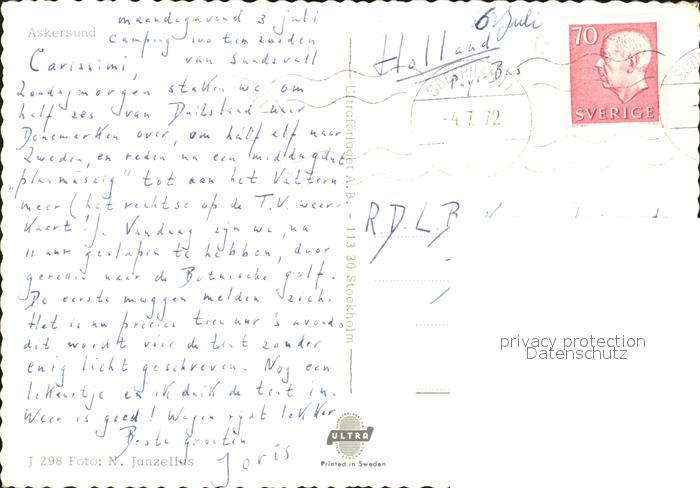 Askersund
maandagavond 3 juli
camping 100 km zuiden
van Sundsvall
Carissimi,
Zondagmorgen staken we om
half zes van Duitsland naar
Denemarken over, om half elf naar
Zweden, en reden na een middagdut
"planmässig" tot aan het Vättern
meer (het rechtse op de T.V. weer-
kaart!). Vandaag zijn we, na
11 uur geslapen te hebben, door
gereden naar de Botnische golf.
De eerste muggen melden zich.
Het is nu precies tien uur 's avonds
dit wordt vóór de tent zonder
enig licht geschreven. Nog een
lekkertje en ik duik de tent in.
Weer is goed! Wagen rijdt lekker
Beste groeten
Joris
J 298 Foto: N. Janzelius
Ultraförlaget A.B. - 113 30 Stockholm
ULTRA
Printed in Sweden
6 Juli
Holland
Pays Bas
-4.7.72
70
SVERIGE
R.D.L.B
privacy protection
Datenschutz